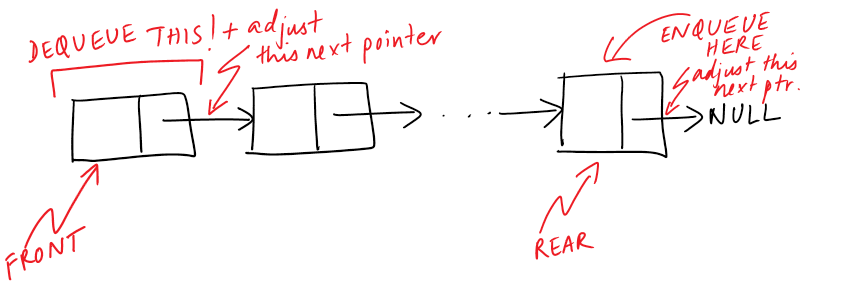 DEQUEUE THIS! + adjust
this next pointer
ENQUEUE
HERE
adjust this
next ptr.
NULL
FRONT
REAR